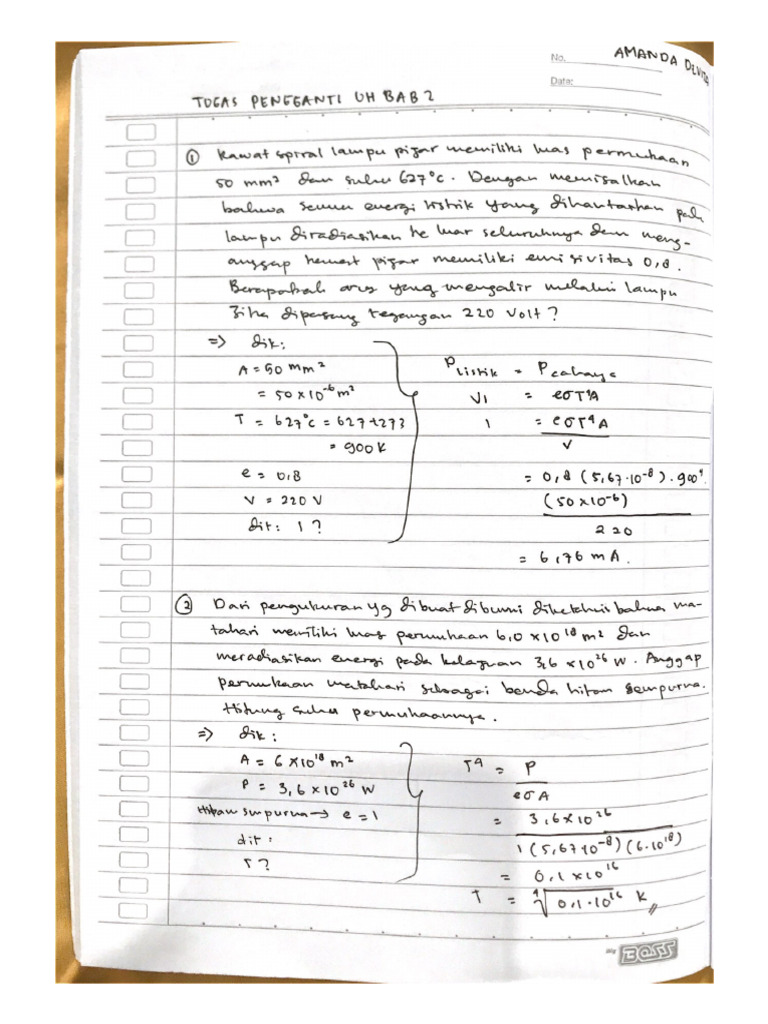 No.
AMANDA DEVITA
Date:
TUGAS PENGGANTI UH BAB 2
① Kawat spiral lampu pijar memiliki luas permukaan
50 mm² dan suhu 627°C. Dengan memisalkan
bahwa semua energi listrik yang dihantarkan pada
lampu diradiasikan ke luar seluruhnya dan meng-
anggap kawat pijar memiliki emisivitas 0,8.
Berapakah arus yang mengalir melalui lampu
Jika dipasang tegangan 220 Volt?
=> dik:
A = 50 mm²
= 50 x 10⁻⁶ m²
T = 627°C = 627 + 273
= 900 K
e = 0,8
V = 220 V
dit: I ?
P listrik = P cahaya
VI = eσT⁴A
I = eσT⁴A
V
= 0,8 (5,67.10⁻⁸) . 900⁴
(50 x 10⁻⁶)
220
= 6,76 mA.
② Dari pengukuran yg dibuat dibumi diketahui bahwa ma-
tahari memiliki luas permukaan 6,0 x 10¹⁸ m² dan
meradiasikan energi pada kelajuan 3,6 x 10²⁶ W. Anggap
permukaan matahari sebagai benda hitam sempurna.
Hitung suhu permukaannya.
=> dik:
A = 6 x 10¹⁸ m²
P = 3,6 x 10²⁶ W
Hitam sempurna → e = 1
dit:
T?
T⁴ = P
eσA
= 3,6 x 10²⁶
1 (5,67.10⁻⁸) (6.10¹⁸)
= 0,1 x 10¹⁶
T = ⁴√0,1.10¹⁶ K
Big BOSS